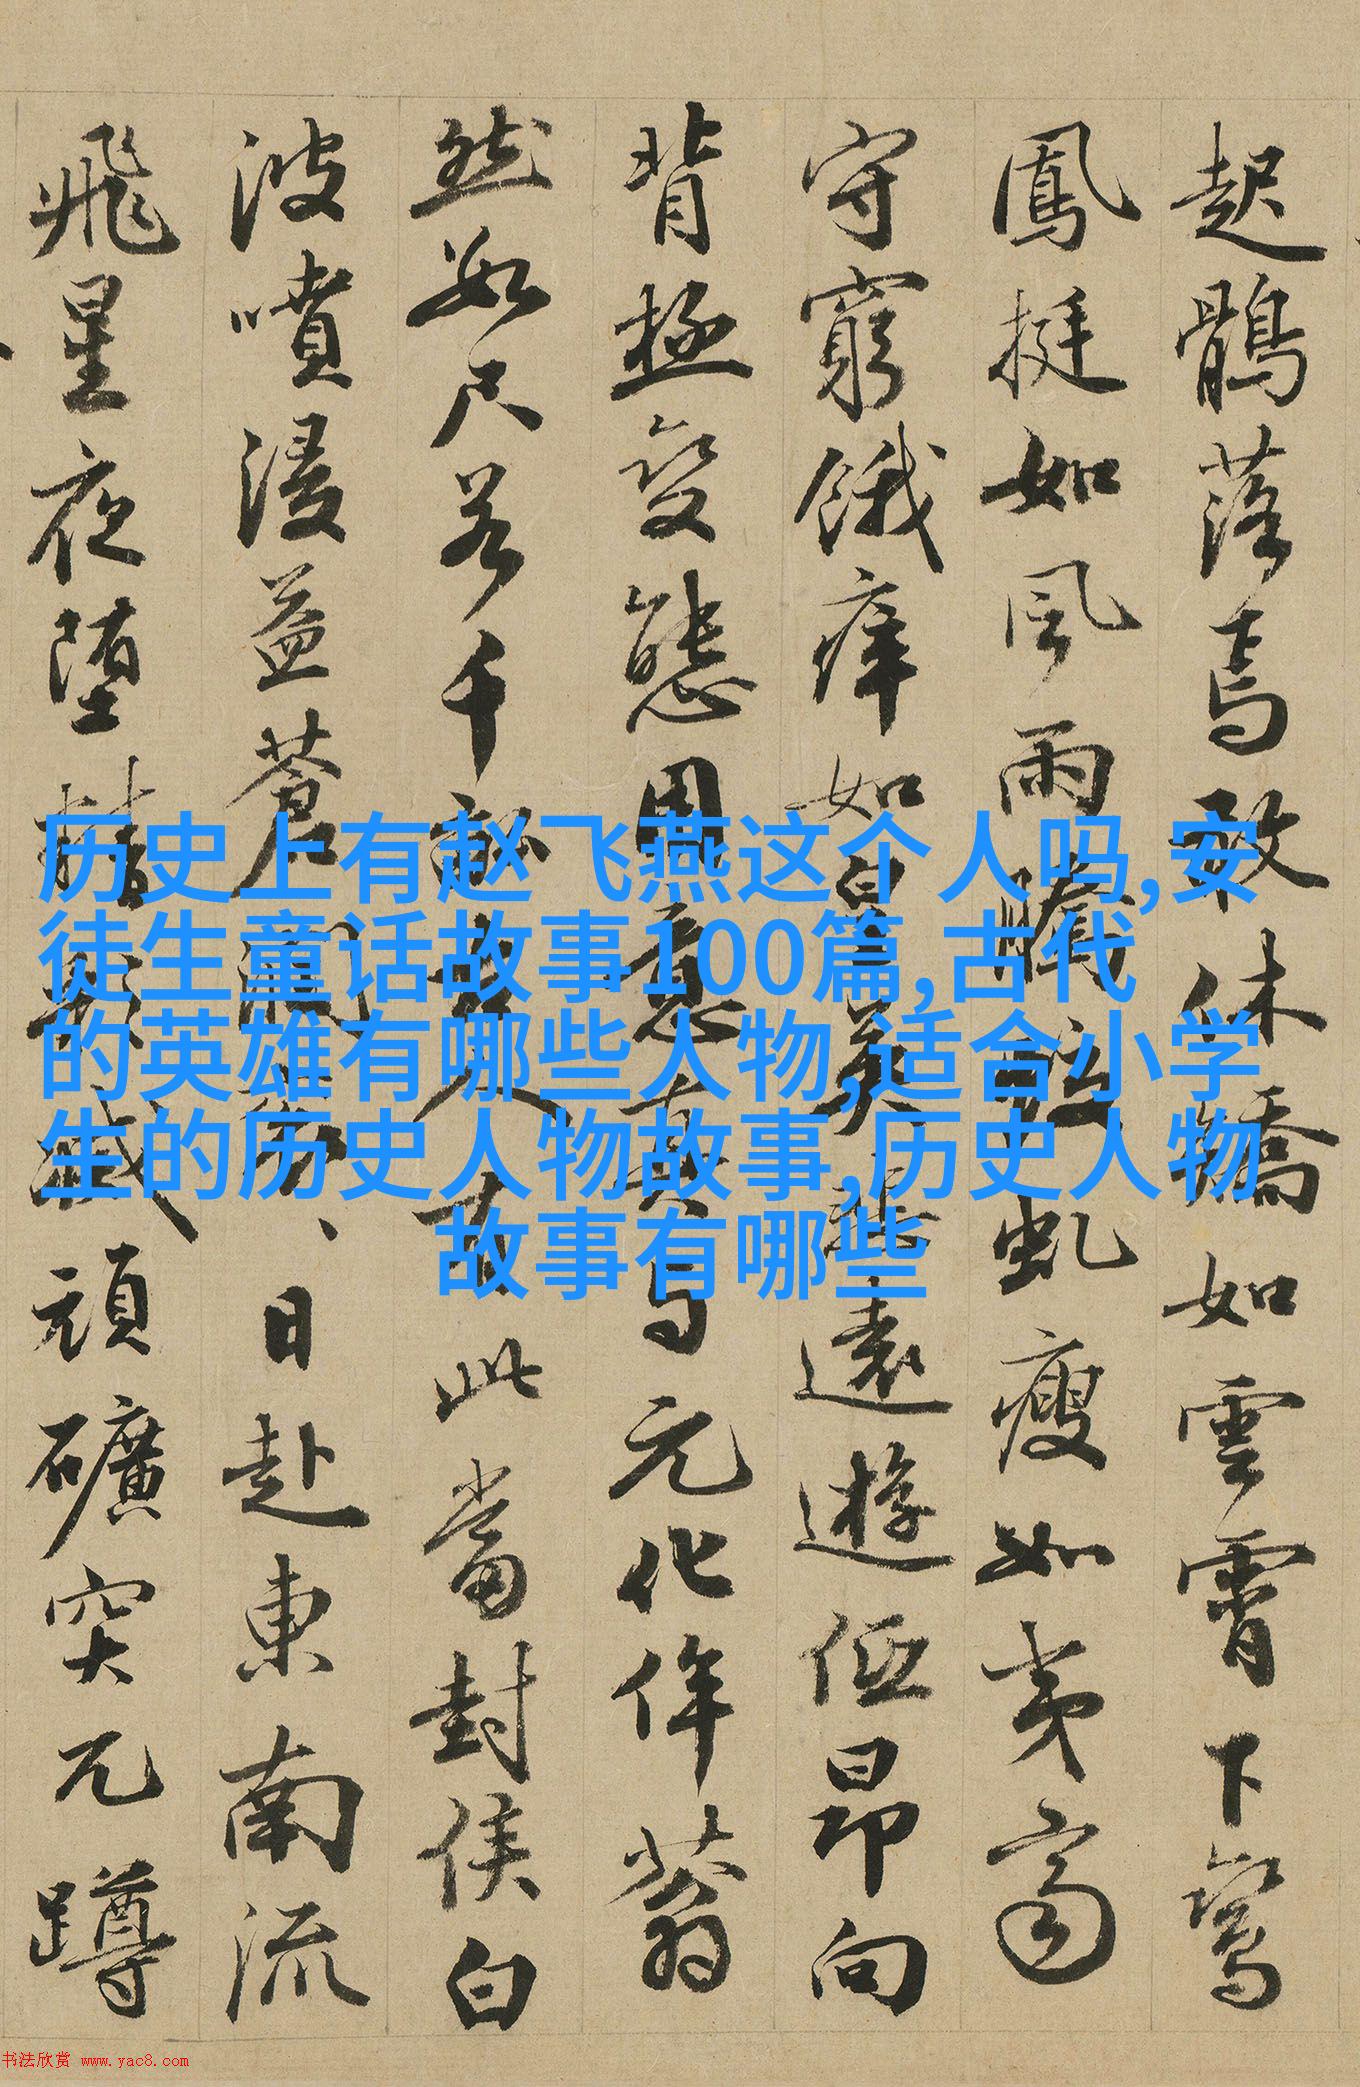 历史上有赵飞燕这个人吗,安
徒生童话故事100篇,古代
的英雄有哪些人物,适合小学
生的历史人物故事,历史人物
故事有哪些
起鶻落焉敢休矯如雲霄下鸞
鳳挺如風雨騰虬瘦如夷齊
守窮餓痒如遠遊低昂向
背極變態用意真与元化侔
然數尺若千此當封侯白
波噴浸益蒼潤日赴東南流
飛星夜堕精頑礦突兀蹲
书法欣赏 www.yac8.com